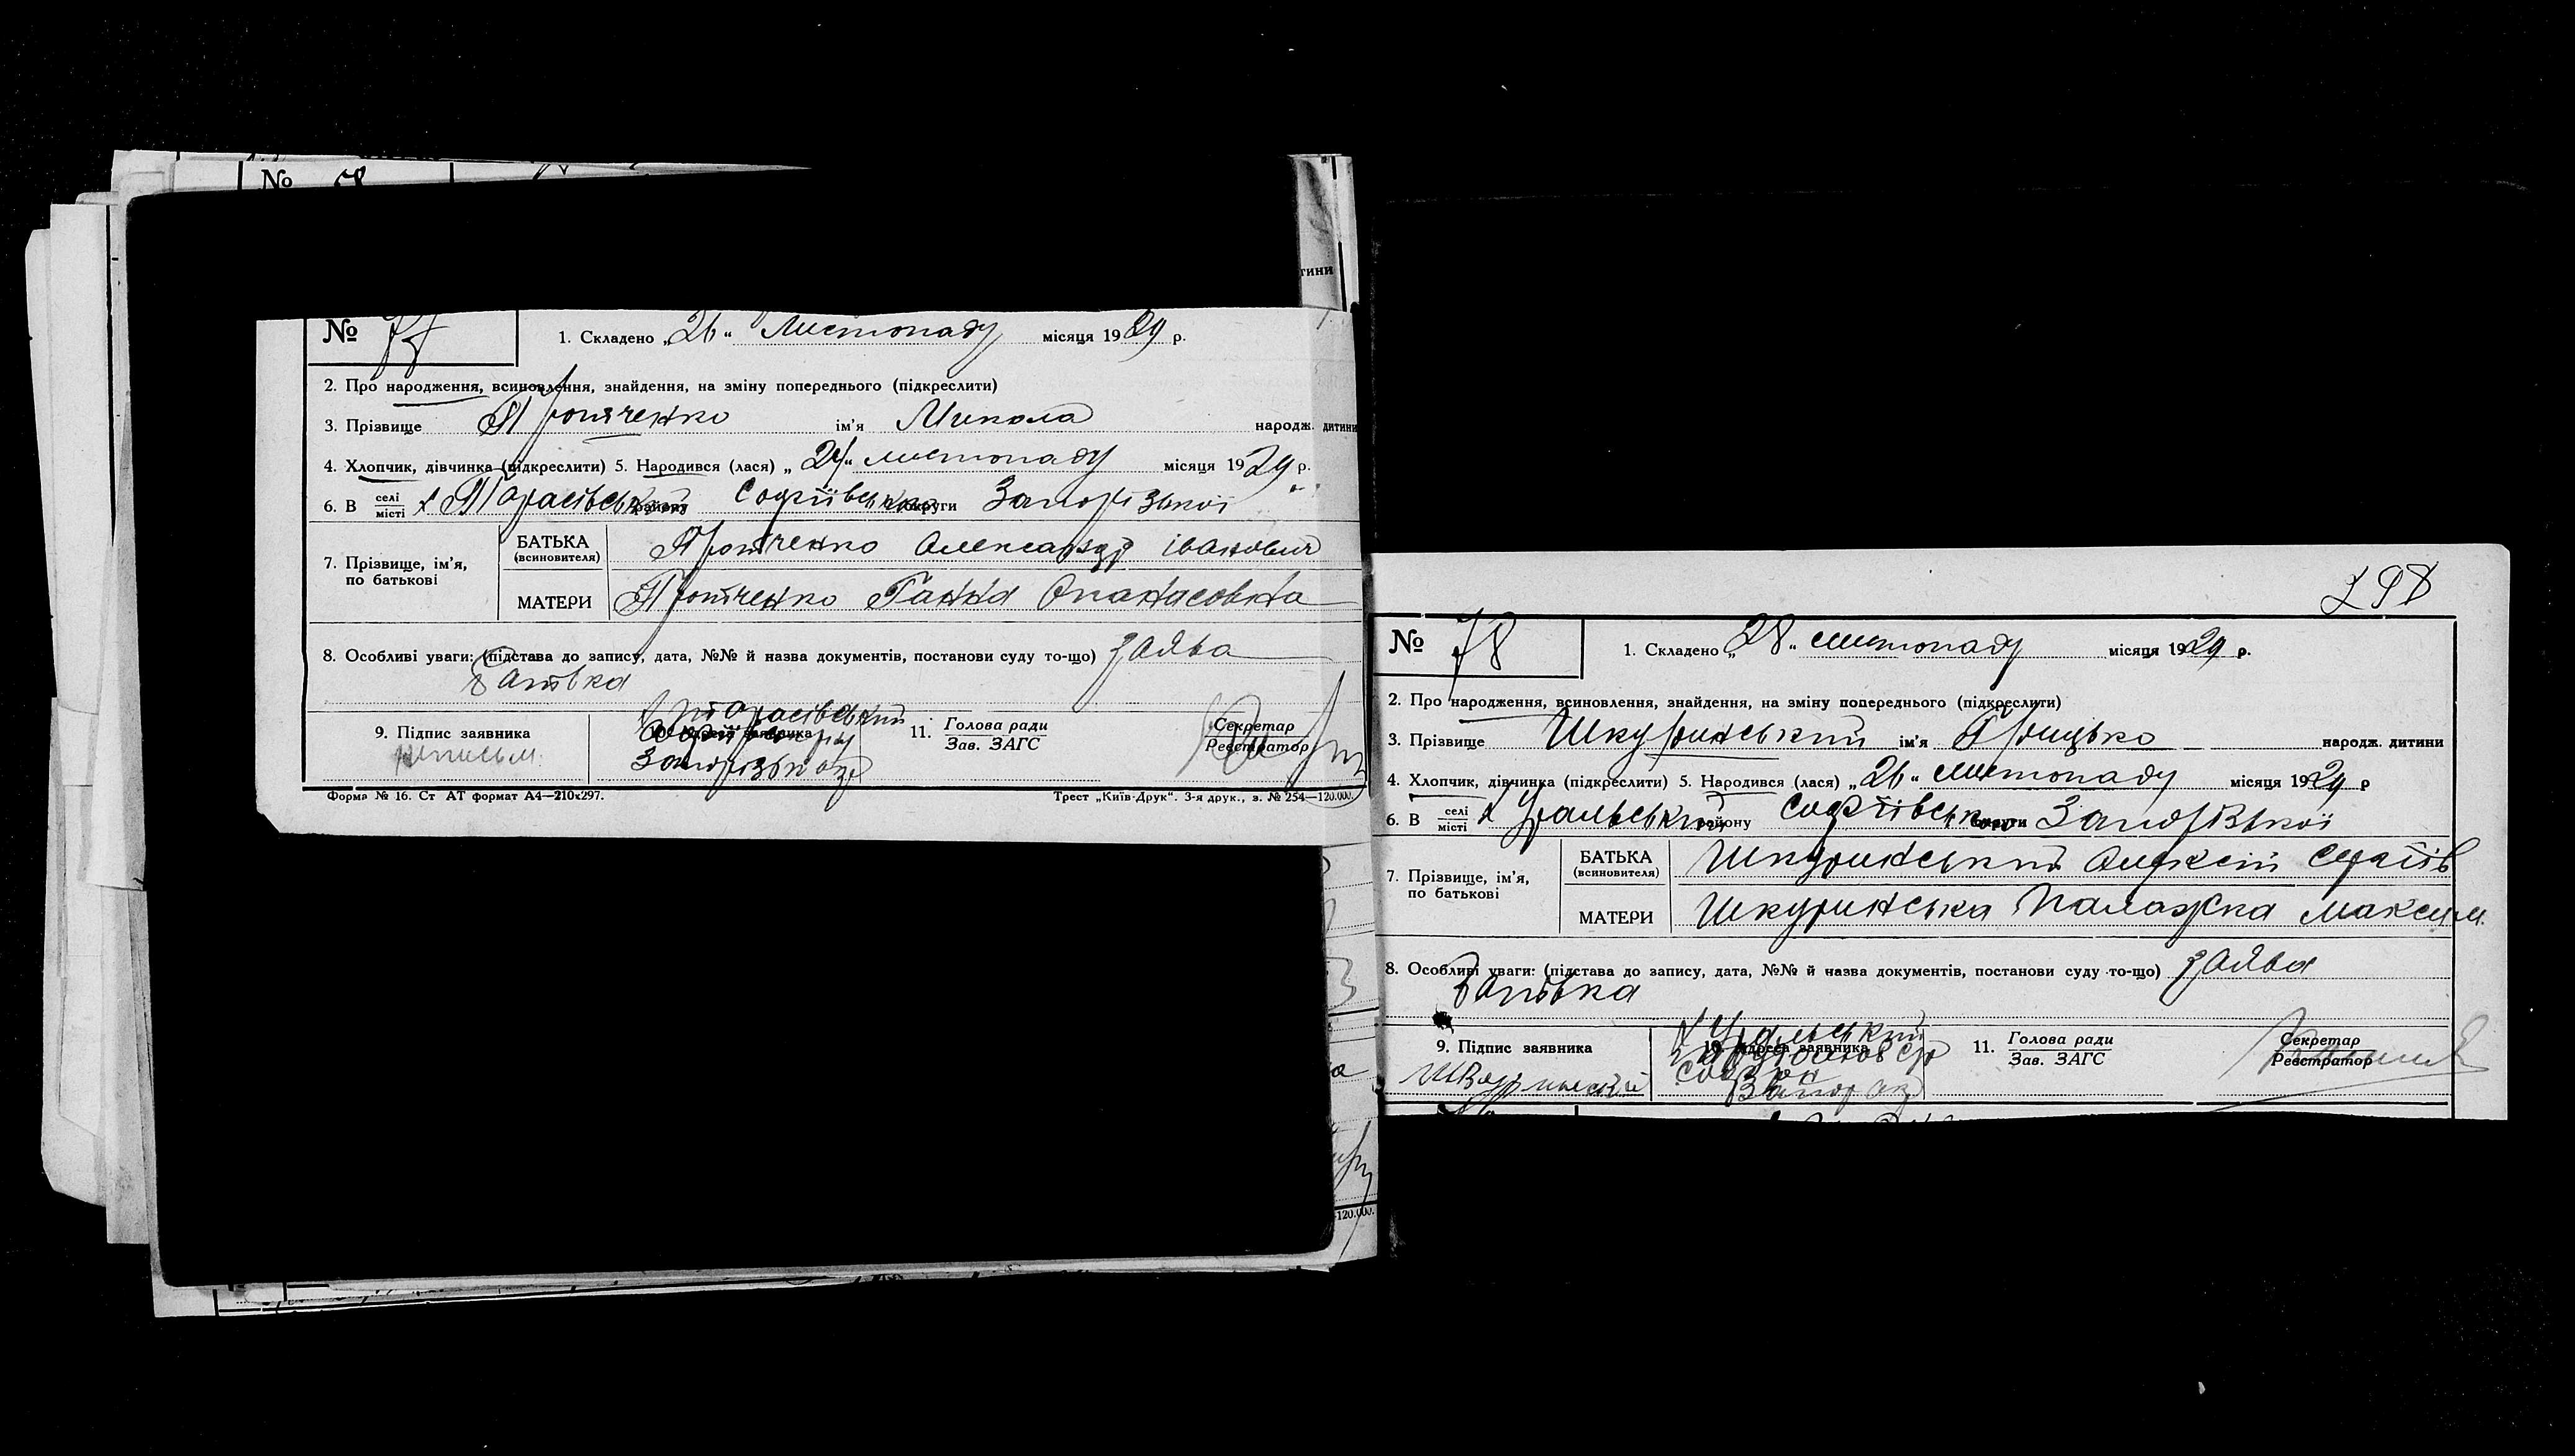 № 58
тини
№ 77
1. Складено „26“ Листопаду місяця 1929 р.
2. Про народження, всиновлення, знайдення, на зміну попереднього (підкреслити)
3. Прізвище Тропяченко ім'я Микола народж. дитини
4. Хлопчик, дівчинка (підкреслити) 5. Народився (лася) „24“ листопаду місяця 1929 р.
6. В селі місті х Тарасівський району Софіївського округи Запорізької
7. Прізвище, ім'я, по батькові
БАТЬКА (всиновителя) Александр Іванович
МАТЕРИ Ганна Опанасовна
8. Особливі уваги: (підстава до запису, дата, №№ й назва документів, постанови суду то-що) заява
батька
9. Підпис заявника
неписьм.
10. Адреса заявника
х Тарасівський
11. Голова ради
Зав. ЗАГС
Секретар
Реєстратор
Форма № 16. Ст АТ формат А4—210х297.
Трест „Київ-Друк“. 3-я друк., з. № 254—120.000.
120.000.
298
№ 78
1. Складено „28“ листопаду місяця 1929 р.
2. Про народження, всиновлення, знайдення, на зміну попереднього (підкреслити)
3. Прізвище Шкуринський ім'я Грицько народж. дитини
4. Хлопчик, дівчинка (підкреслити) 5. Народився (лася) „26“ листопаду місяця 1929 р
6. В селі місті х Уральський району Софіївського округи Запорізької
7. Прізвище, ім'я, по батькові
БАТЬКА (всиновителя) Шкуринський Олексій Сергіїв
МАТЕРИ Шкуринська Палажка Максим.
8. Особливі уваги: (підстава до запису, дата, №№ й назва документів, постанови суду то-що) заява
батька
9. Підпис заявника
10. Адреса заявника
х Уральський
11. Голова ради
Зав. ЗАГС
Секретар
Реєстратор